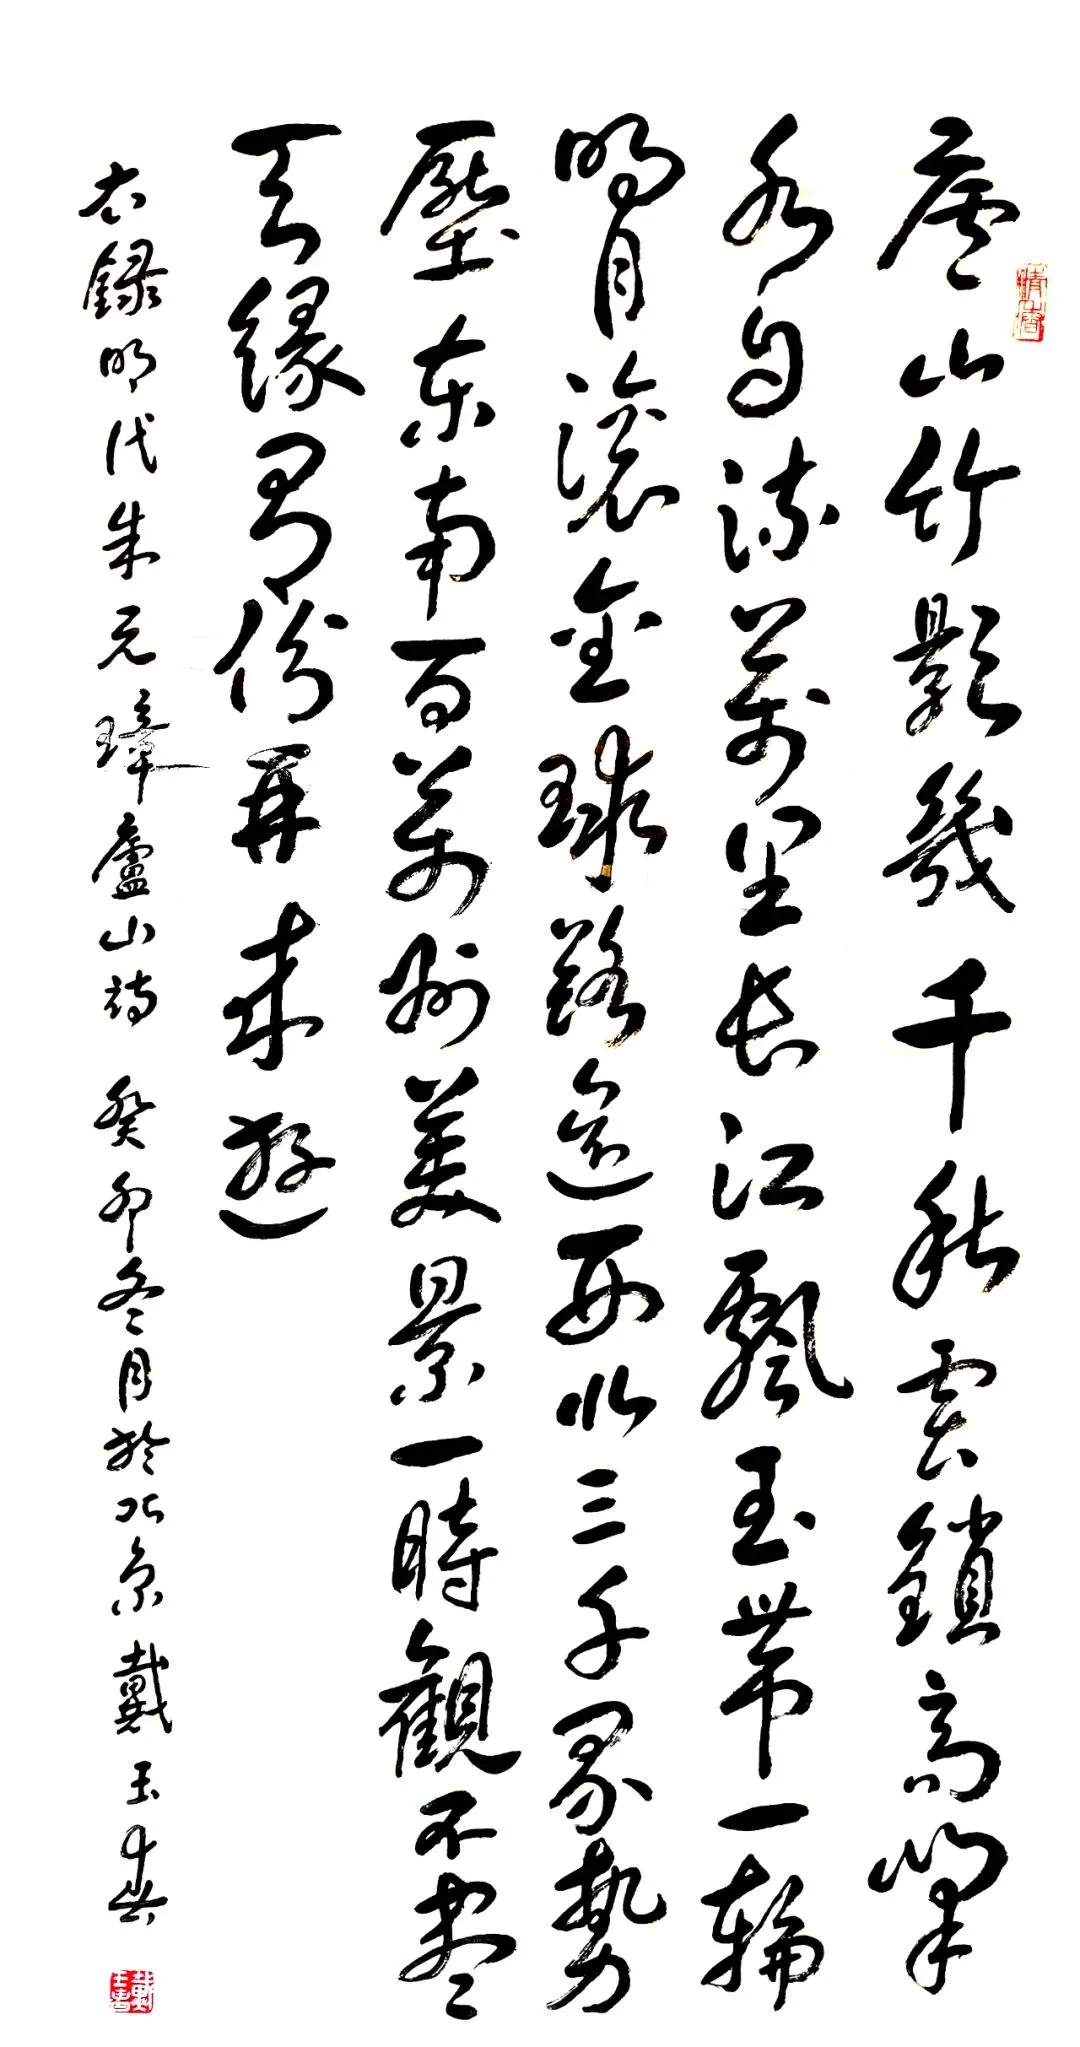 廬山竹影幾千秋雲鎖高峰
水自流萬里長江飄玉帶一輪
明月滾金球路遙西北三千界勢
壓東南百萬州美景一時觀不盡
天緣有份再來遊
右錄明代朱元璋廬山詩 癸卯冬月於北京戴玉